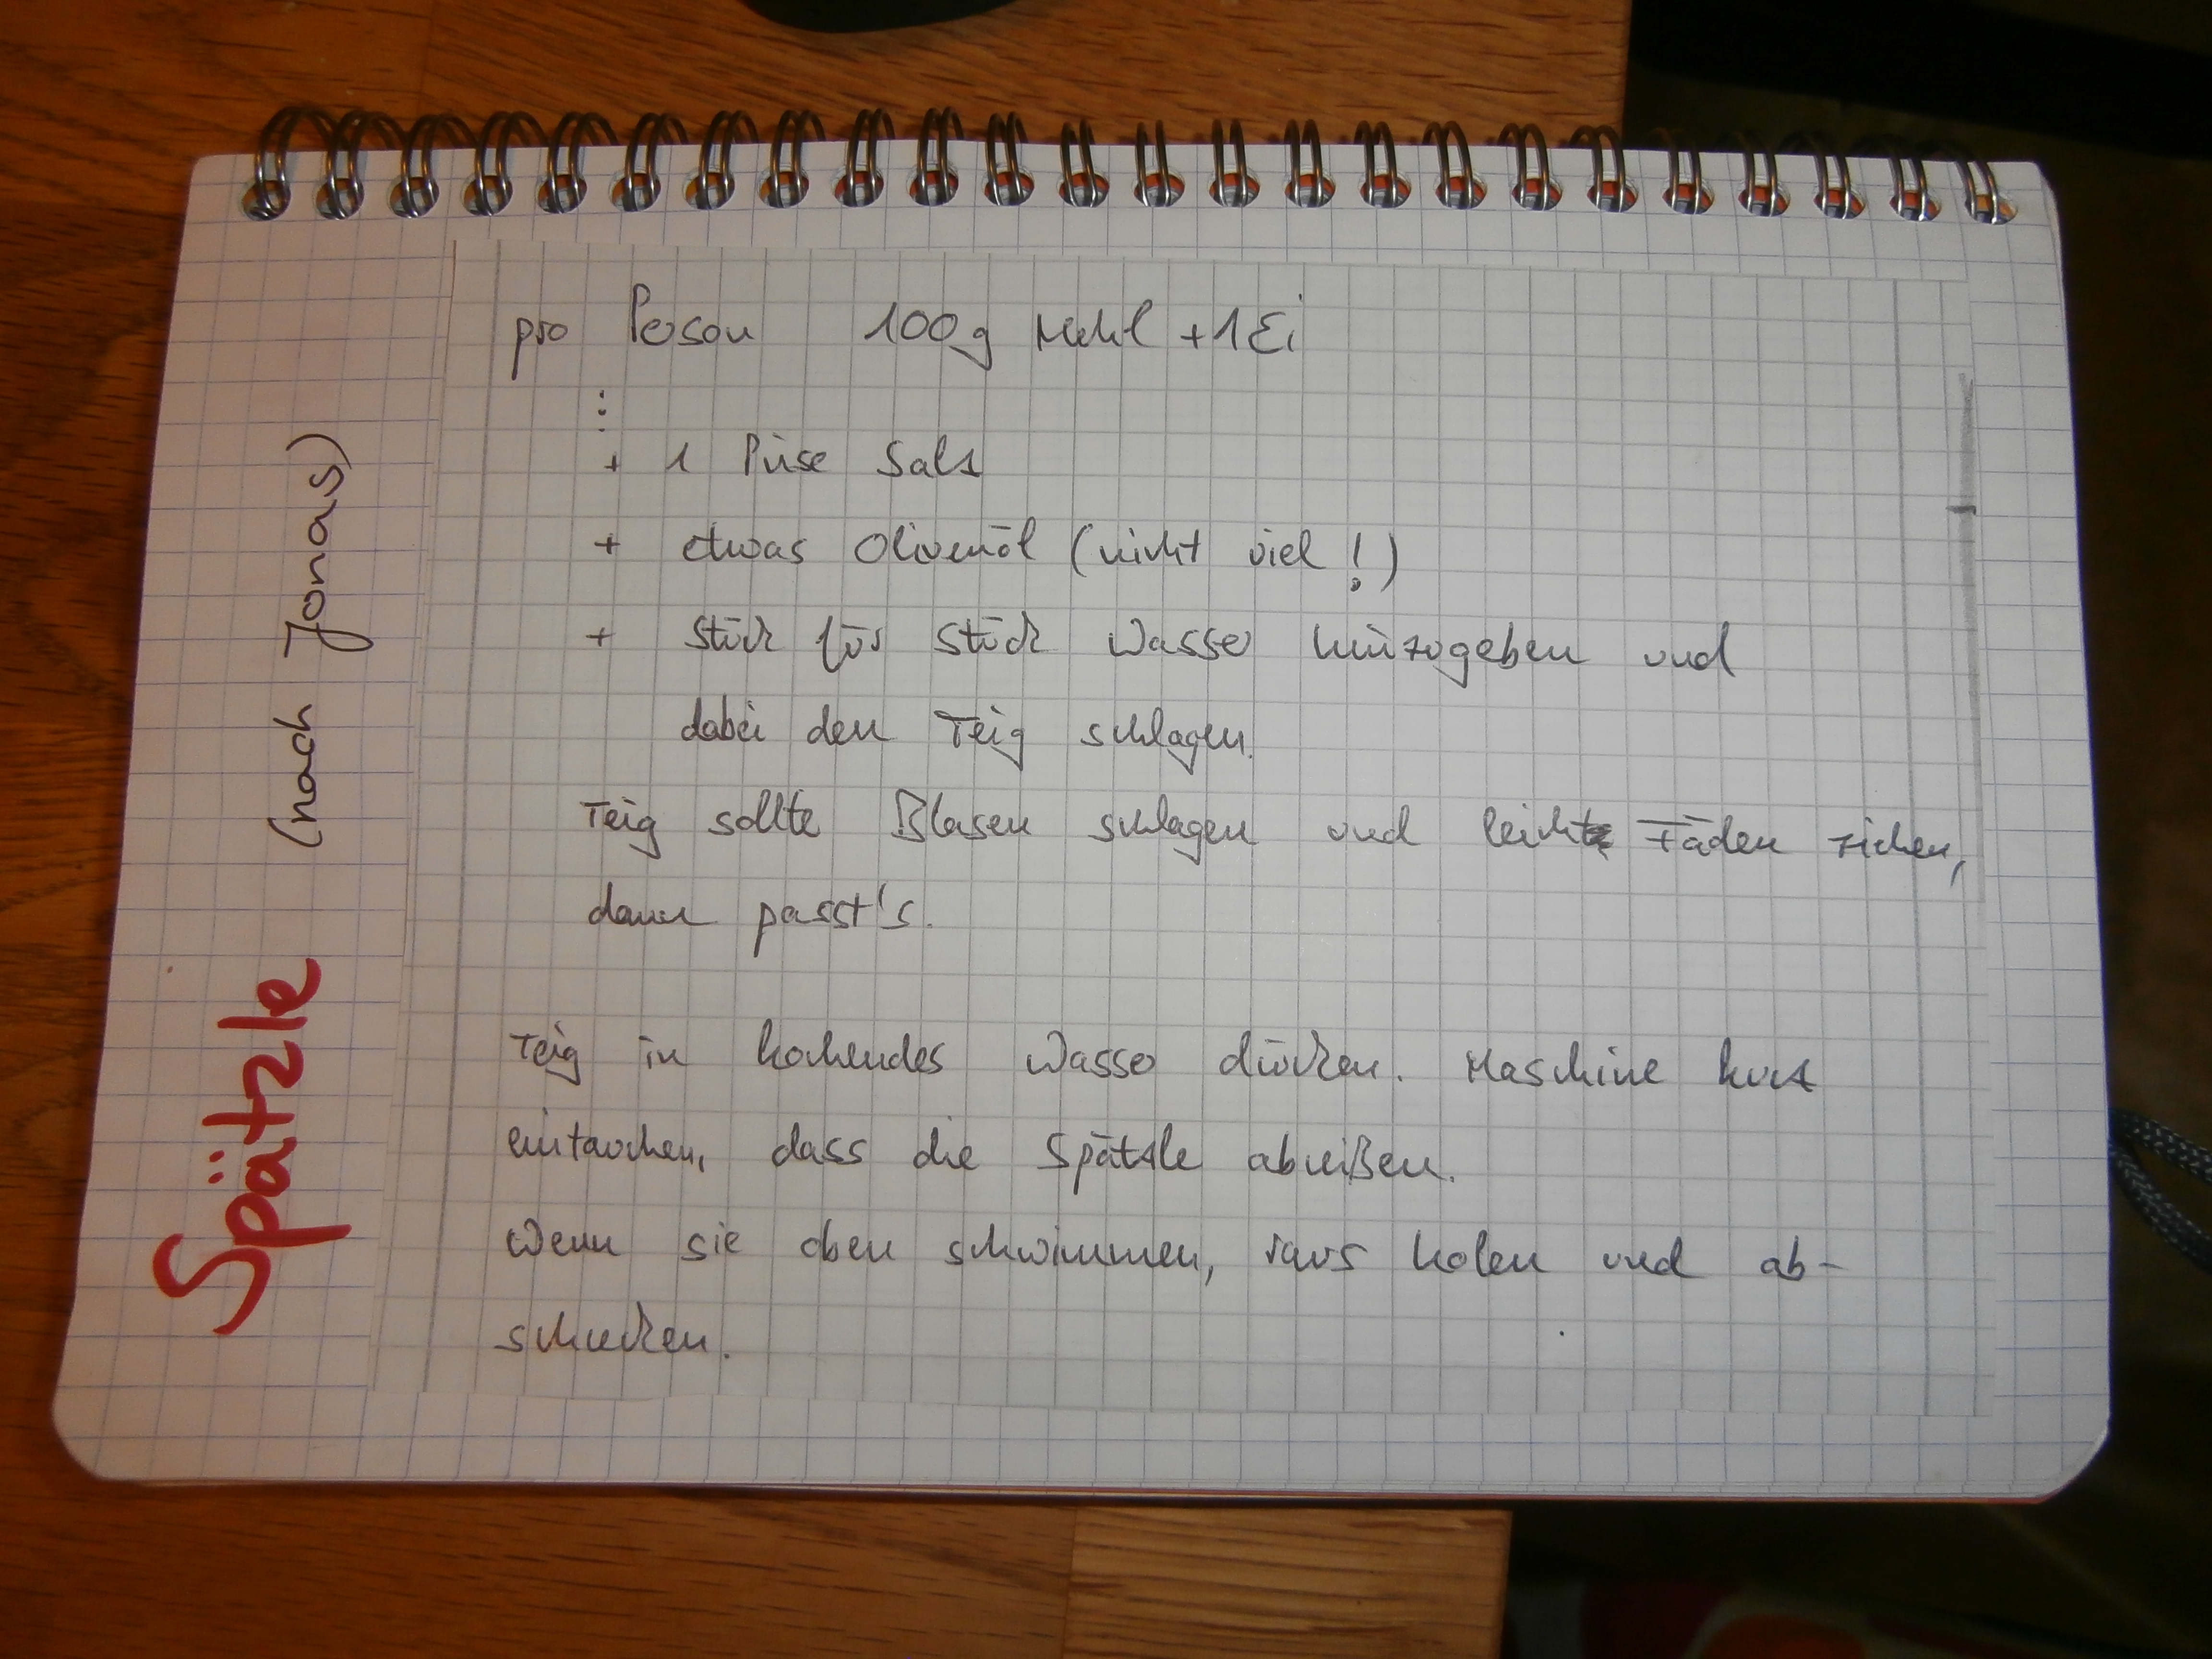 Spätzle (nach Jonas)
pro Person 100g Mehl + 1 Ei
⋮
+ 1 Prise Salz
+ etwas Olivenöl (nicht viel!)
+ Stück für Stück Wasser hinzugeben und
dabei den Teig schlagen.
Teig sollte Blasen schlagen und leicht Fäden ziehen,
dann passt's.
Teig in kochendes Wasser drücken. Maschine kurz
eintauchen, dass die Spätzle abreißen.
Wenn sie oben schwimmen, raus holen und ab-
schrecken.